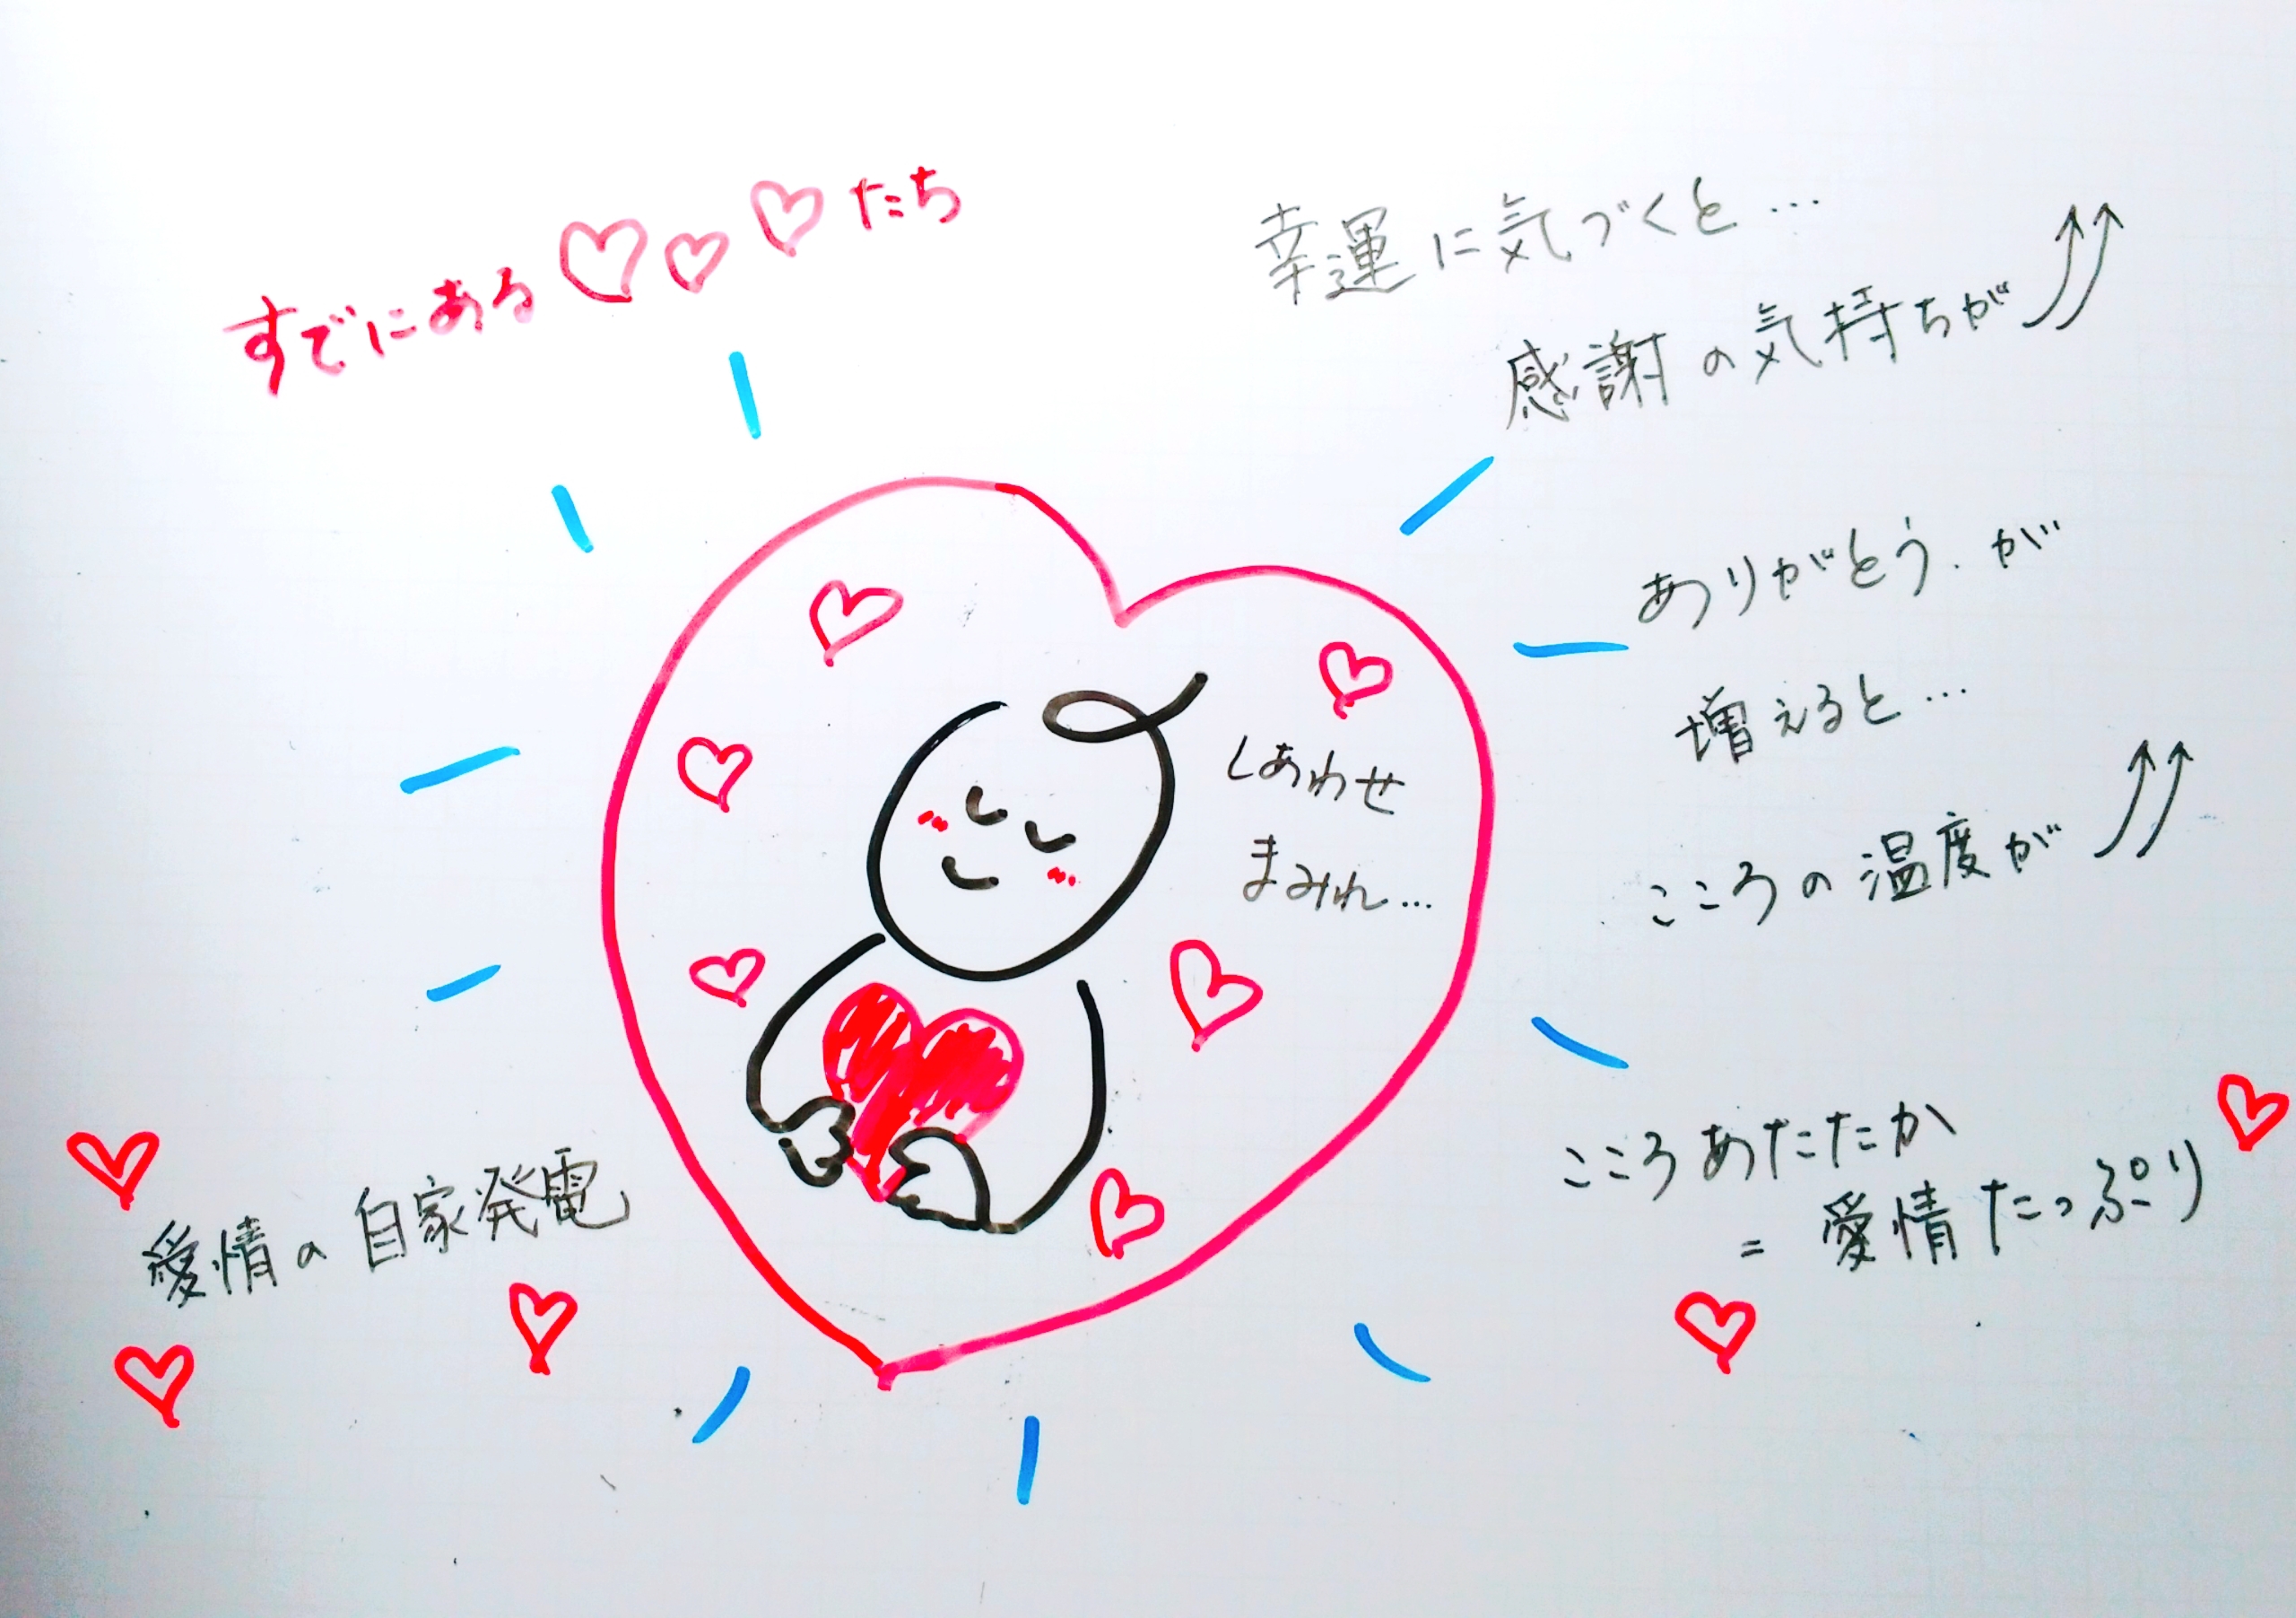 すでにある♡♡♡たち
幸運に気づくと…
感謝の気持ちが↑↑
ありがとう.が
増えると…
こころの温度が↑↑
しあわせ
まみれ…
こころあたたか
=愛情たっぷり
愛情の自家発電